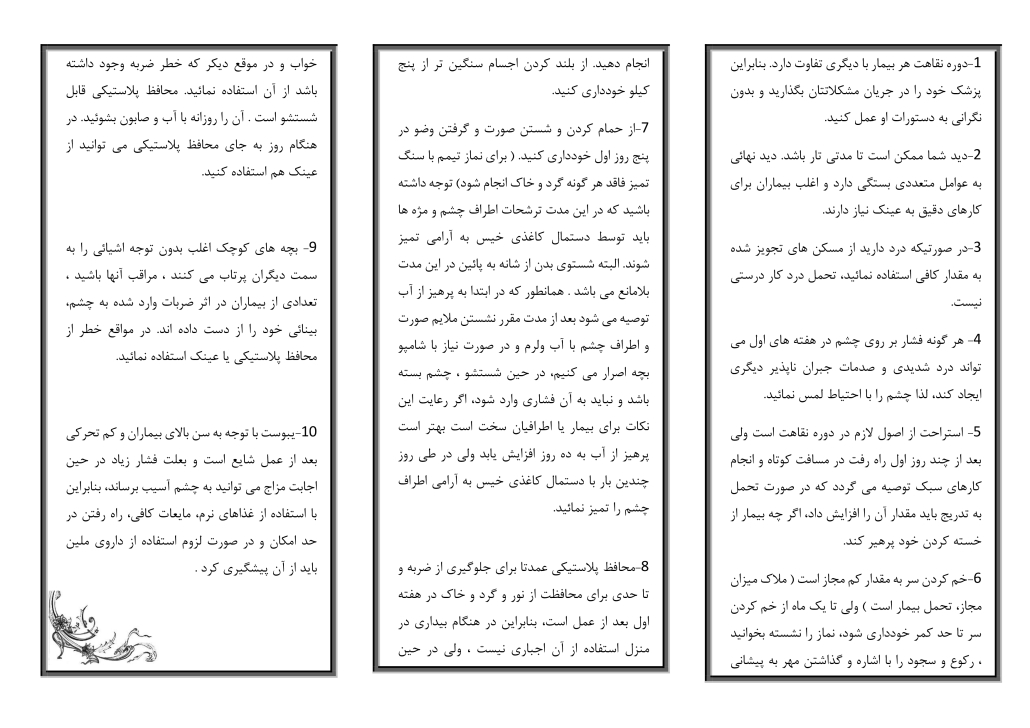 1-دوره نقاهت هر بیمار با دیگری تفاوت دارد. بنابراین
پزشک خود را در جریان مشکلاتتان بگذارید و بدون
نگرانی به دستورات او عمل کنید.
2-دید شما ممکن است تا مدتی تار باشد. دید نهائی
به عوامل متعددی بستگی دارد و اغلب بیماران برای
کارهای دقیق به عینک نیاز دارند.
3-در صورتیکه درد دارید از مسکن های تجویز شده
به مقدار کافی استفاده نمائید، تحمل درد کار درستی
نیست.
4- هر گونه فشار بر روی چشم در هفته های اول می
تواند درد شدیدی و صدمات جبران ناپذیر دیگری
ایجاد کند، لذا چشم را با احتیاط لمس نمائید.
5- استراحت از اصول لازم در دوره نقاهت است ولی
بعد از چند روز اول راه رفت در مسافت کوتاه و انجام
کارهای سبک توصیه می گردد که در صورت تحمل
به تدریج باید مقدار آن را افزایش داد، اگر چه بیمار از
خسته کردن خود پرهیر کند.
6-خم کردن سر به مقدار کم مجاز است ( ملاک میزان
مجاز، تحمل بیمار است ) ولی تا یک ماه از خم کردن
سر تا حد کمر خودداری شود، نماز را نشسته بخوانید
، رکوع و سجود را با اشاره و گذاشتن مهر به پیشانی
انجام دهید. از بلند کردن اجسام سنگین تر از پنج
کیلو خودداری کنید.
7-از حمام کردن و شستن صورت و گرفتن وضو در
پنج روز اول خودداری کنید. ( برای نماز تیمم با سنگ
تمیز فاقد هر گونه گرد و خاک انجام شود) توجه داشته
باشید که در این مدت ترشحات اطراف چشم و مژه ها
باید توسط دستمال کاغذی خیس به آرامی تمیز
شوند. البته شستوی بدن از شانه به پائین در این مدت
بلامانع می باشد . همانطور که در ابتدا به پرهیز از آب
توصیه می شود بعد از مدت مقرر نشستن ملایم صورت
و اطراف چشم با آب ولرم و در صورت نیاز با شامپو
بچه اصرار می کنیم، در حین شستشو ، چشم بسته
باشد و نباید به آن فشاری وارد شود، اگر رعایت این
نکات برای بیمار یا اطرافیان سخت است بهتر است
پرهیز از آب به ده روز افزایش یابد ولی در طی روز
چندین بار با دستمال کاغذی خیس به آرامی اطراف
چشم را تمیز نمائید.
8-محافظ پلاستیکی عمدتا برای جلوگیری از ضربه و
تا حدی برای محافظت از نور و گرد و خاک در هفته
اول بعد از عمل است، بنابراین در هنگام بیداری در
منزل استفاده از آن اجباری نیست ، ولی در حین
خواب و در موقع دیکر که خطر ضربه وجود داشته
باشد از آن استفاده نمائید. محافظ پلاستیکی قابل
شستشو است . آن را روزانه با آب و صابون بشوئید. در
هنگام روز به جای محافظ پلاستیکی می توانید از
عینک هم استفاده کنید.
9- بچه های کوچک اغلب بدون توجه اشیائی را به
سمت دیگران پرتاب می کنند ، مراقب آنها باشید ،
تعدادی از بیماران در اثر ضربات وارد شده به چشم،
بینائی خود را از دست داده اند. در مواقع خطر از
محافظ پلاستیکی یا عینک استفاده نمائید.
10-یبوست با توجه به سن بالای بیماران و کم تحرکی
بعد از عمل شایع است و بعلت فشار زیاد در حین
اجابت مزاج می توانید به چشم آسیب برساند، بنابراین
با استفاده از غذاهای نرم، مایعات کافی، راه رفتن در
حد امکان و در صورت لزوم استفاده از داروی ملین
باید از آن پیشگیری کرد .